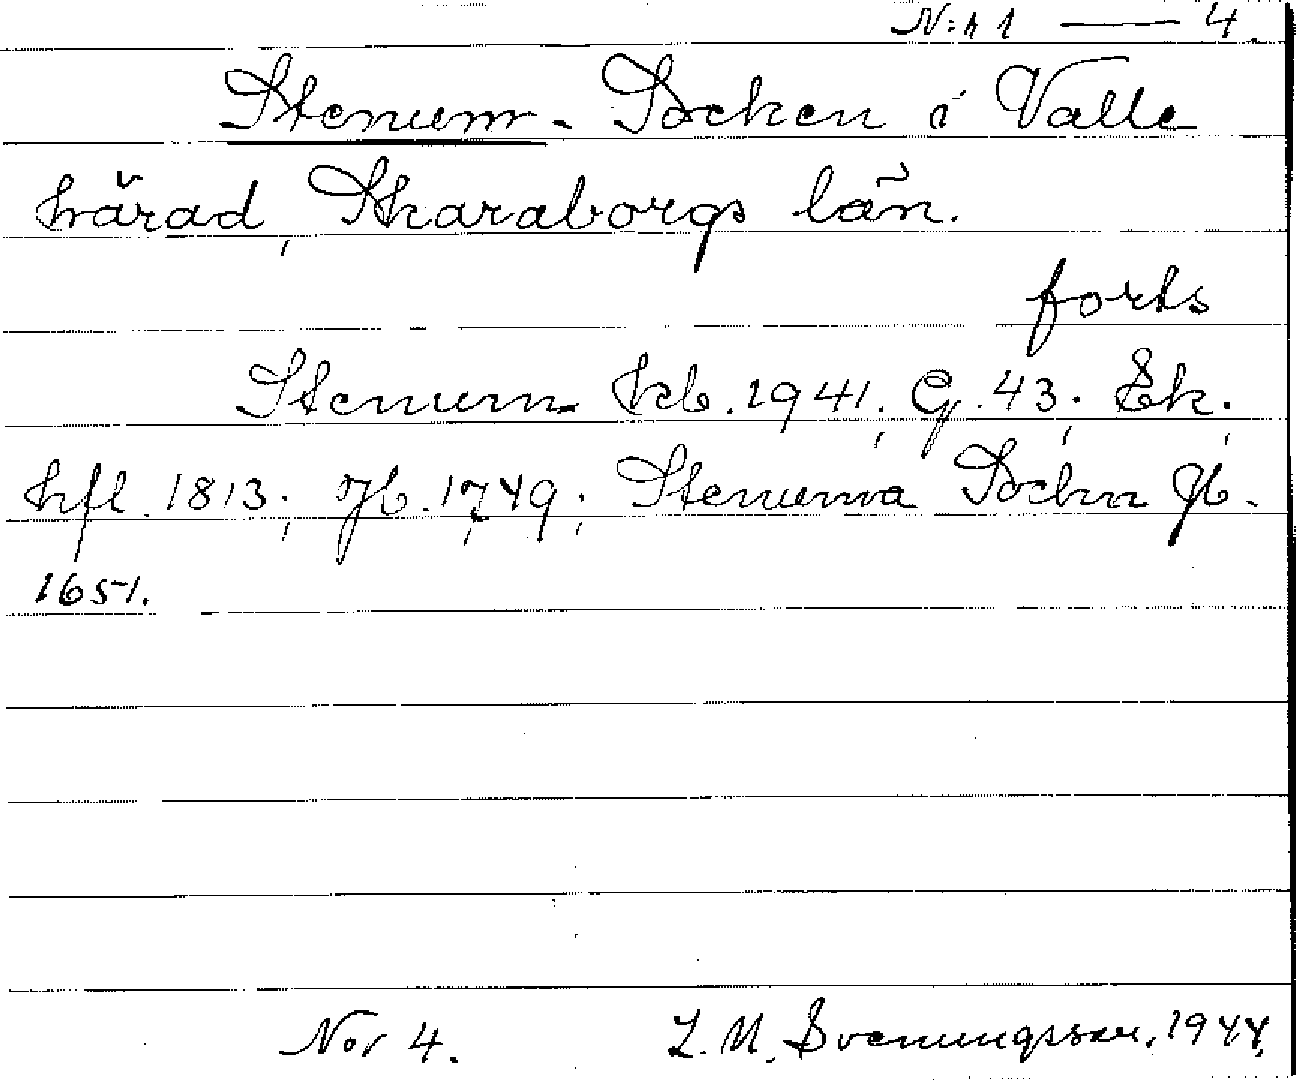 N:r 1 — 4.
Stenum - Socken i Valle
härad, Skaraborgs län.
forts
Stenum hb. 1941; G. 43; Ek.;
hfl. 1813; Jb. 1749; Stenuma Sochn Jb.
1651.
Nor 4. L. M. Svenungsson, 1944.